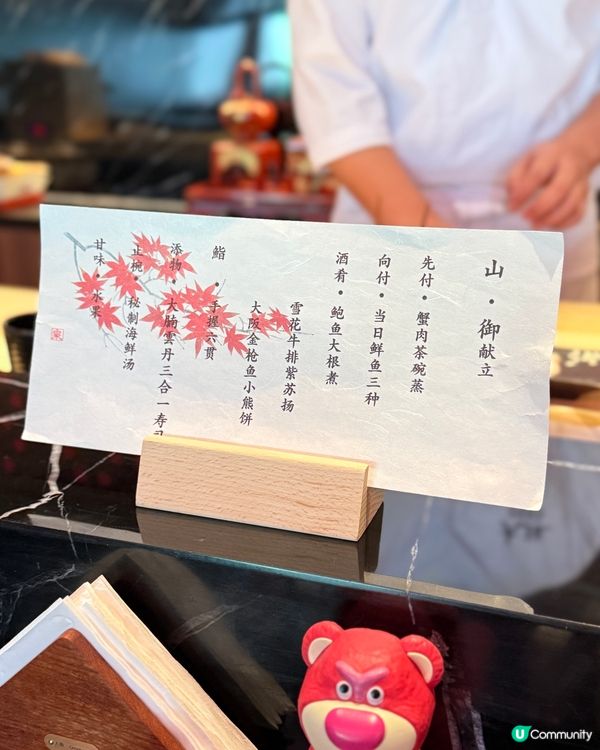 山・御献立
先付・蟹肉茶碗蒸
向付・当日鲜鱼三种
酒肴・鲍鱼大根煮
雪花牛排紫苏扬
大阪金枪鱼小熊饼
鮨・手握六贯
添物・大腩雲丹三合一寿司
止椀・秘制海鲜汤
甘味・水果
U Community